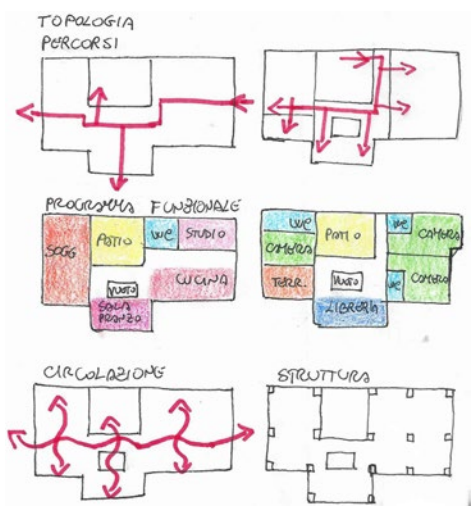 TOPOLOGIA
PERCORSI
PROGRAMMA FUNZIONALE
SOGG
PATIO
WC
STUDIO
VUOTO
CUCINA
SALA
PRANZO
WC
PATIO
WC
CAMERA
CAMERA
TERR.
VUOTO
WC
CAMERA
LIBRERIA
CIRCOLAZIONE
STRUTTURA